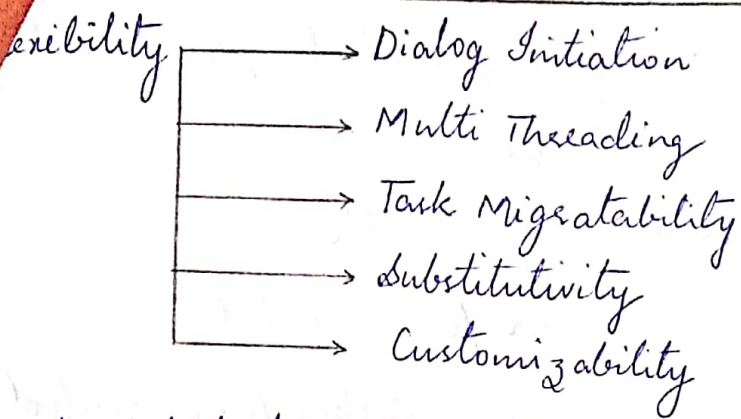 exibility
Dialog Initiation
Multi Threading
Task Migratability
Substitutivity
Customizability